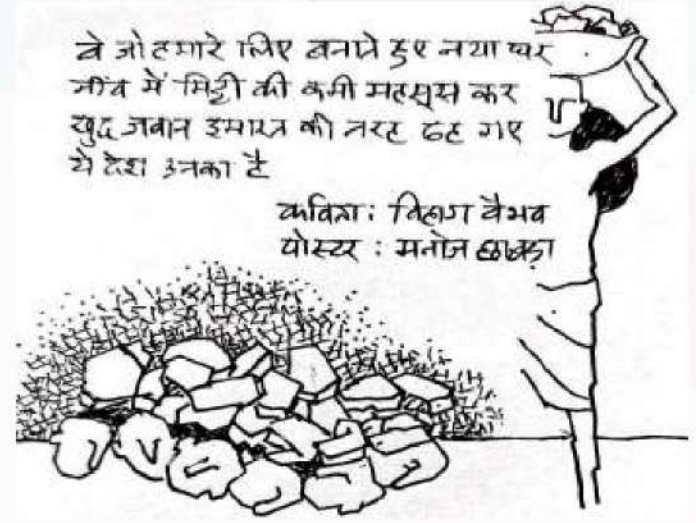 वे जो हमारे लिए बनाते हुए नया घर
नींव में मिट्टी की कमी महसूस कर
खुद जवान इमारत की तरह ढह गए
ये देश उनका है
कविता : विहाग वैभव
पोस्टर : मनोज छाबड़ा